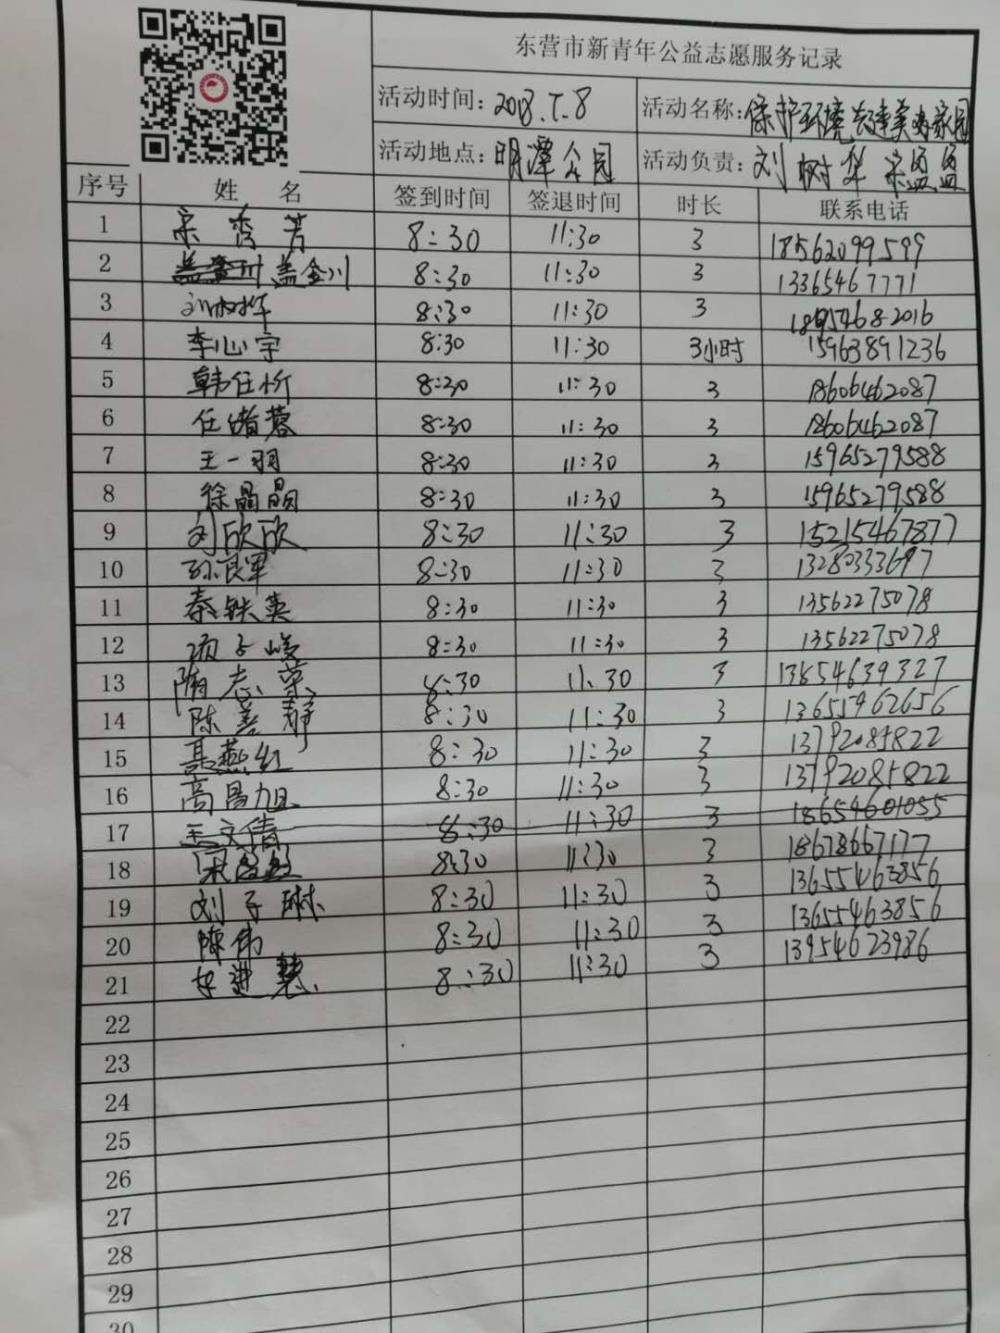 东营市新青年公益志愿服务记录
活动时间: 2018.7.8 活动名称: 保护环境 共建美好家园
活动地点: 明潭公园 活动负责: 刘树华 宋盈盈
序号 姓 名 签到时间 签退时间 时长 联系电话
1 宋秀芳 8:30 11:30 3 18562099599
2 盖金川 8:30 11:30 3 13365467771
3 刘树华 8:30 11:30 3 18954682016
4 李心宇 8:30 11:30 3小时 15963891236
5 韩任忻 8:30 11:30 3 18606462087
6 任绪蓉 8:30 11:30 3 18606462087
7 王一羽 8:30 11:30 3 15965279588
8 徐晶晶 8:30 11:30 3 15965279588
9 刘欣欣 8:30 11:30 3 15215467877
10 孙良军 8:30 11:30 3 13280333697
11 秦铁英 8:30 11:30 3 13562275078
12 项子峻 8:30 11:30 3 13562275078
13 隋志荣 8:30 11:30 3 13854639327
14 陈善静 8:30 11:30 3 13655462656
15 聂燕红 8:30 11:30 3 13792085822
16 高昌旭 8:30 11:30 3 13792085822
17 王文倩 8:30 11:30 3 18654601055
18 宋盈盈 8:30 11:30 3 18678667177
19 刘子琳 8:30 11:30 3 13655463856
20 陈伟 8:30 11:30 3 13655463856
21 进慧 8:30 11:30 3 13954623986
22
23
24
25
26
27
28
29
30